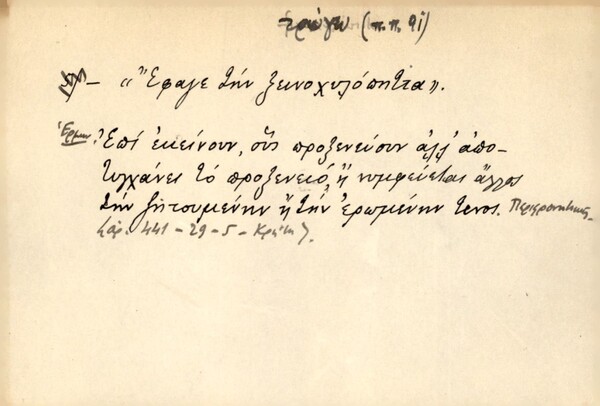 τρώγω (π.π. 91)
– «Ἔφαγε τὴν ξινοχυλόπηττα».
Ἑρμην. Ἐπὶ ἐκείνων, οὓς προξενεύουν ἀλλ' ἀπο-
τυγχάνει τὸ προξενειό, ἢ νυμφεύεται ἄλλος
τὴν ζητουμένην ἢ τὴν ἐρωμένην τινος.
ἀρ. 441 – 29 – 5 – Κρήτη